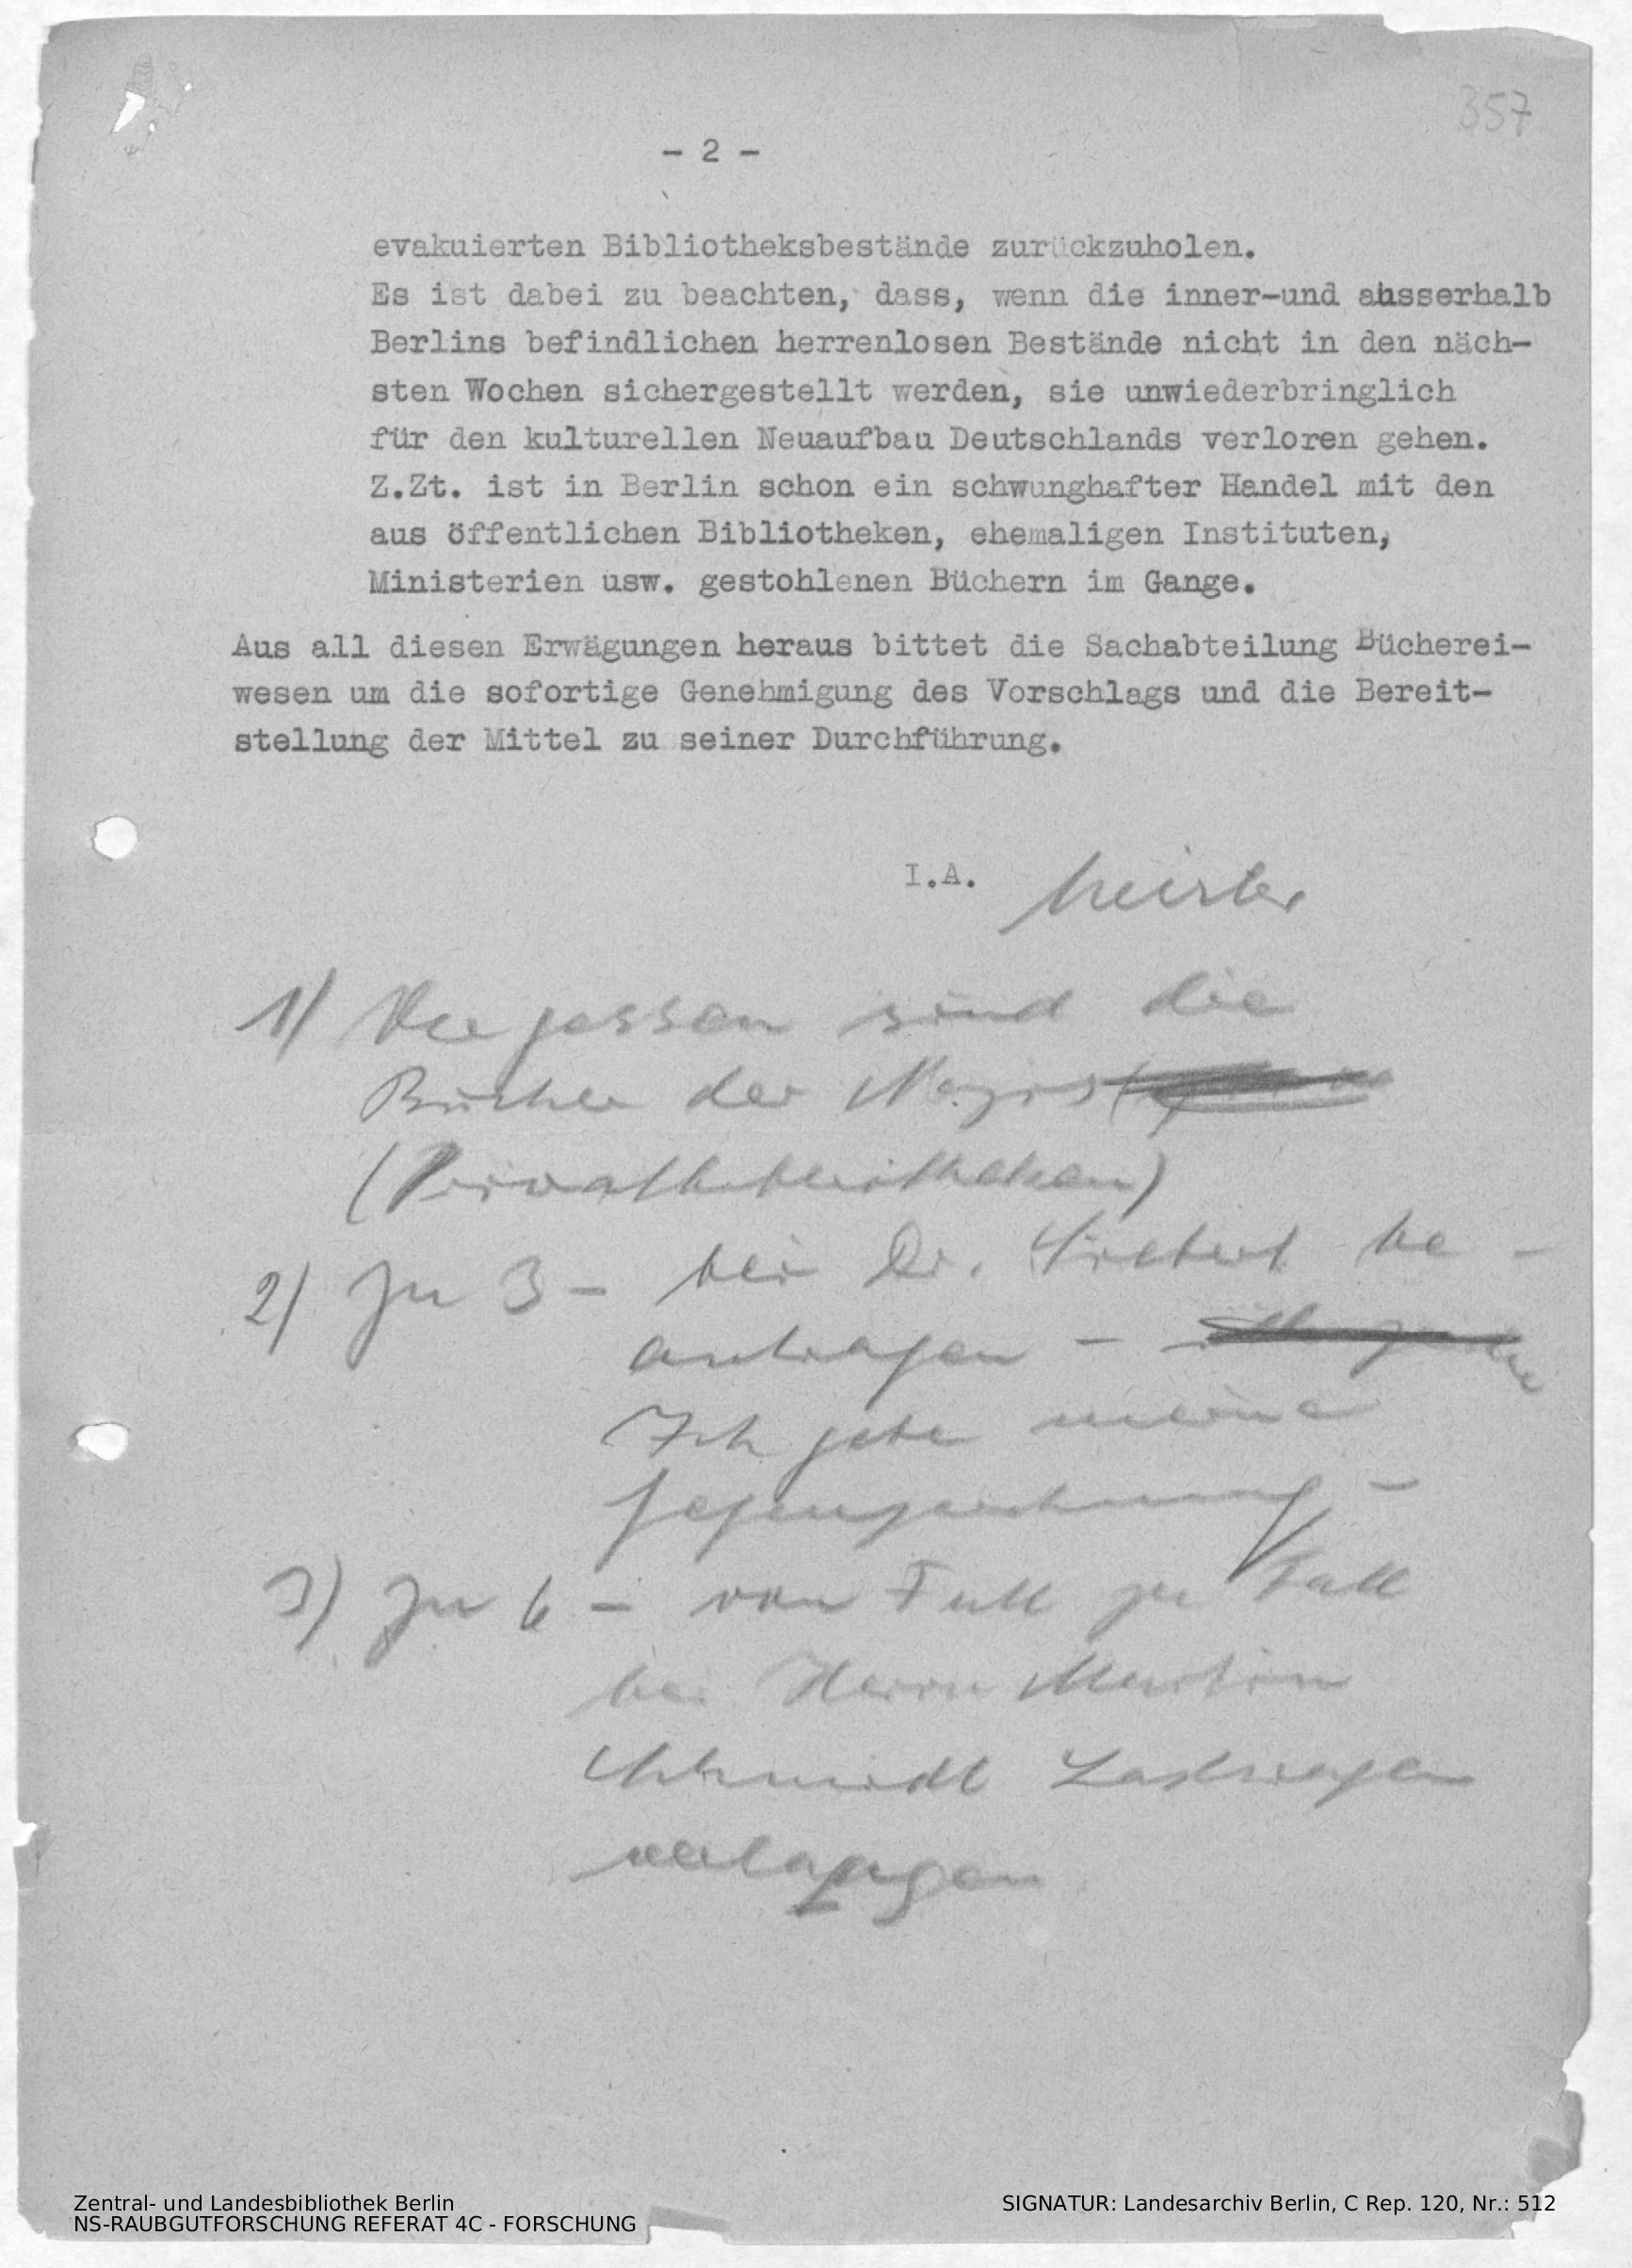 357
- 2 -
evakuierten Bibliotheksbestände zurückzuholen.
Es ist dabei zu beachten, dass, wenn die inner-und ausserhalb
Berlins befindlichen herrenlosen Bestände nicht in den näch-
sten Wochen sichergestellt werden, sie unwiederbringlich
für den kulturellen Neuaufbau Deutschlands verloren gehen.
Z.Zt. ist in Berlin schon ein schwunghafter Handel mit den
aus öffentlichen Bibliotheken, ehemaligen Instituten,
Ministerien usw. gestohlenen Büchern im Gange.
Aus all diesen Erwägungen heraus bittet die Sachabteilung Bücherei-
wesen um die sofortige Genehmigung des Vorschlags und die Bereit-
stellung der Mittel zu seiner Durchführung.
I.A.
1) Vergessen sind die
Bücher der Nazis
(Privatbibliotheken)
2) Zu 3 - bei Dr. be-
antragen -
Ich gebe meine
Gegenzeichnung -
3) Zu 6 - von Fall zu Fall
bei Herrn Martin
Schmidt Lastwagen
verlangen
Zentral- und Landesbibliothek Berlin
NS-RAUBGUTFORSCHUNG REFERAT 4C - FORSCHUNG
SIGNATUR: Landesarchiv Berlin, C Rep. 120, Nr.: 512